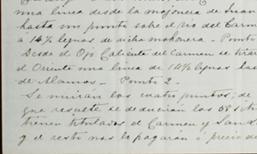 una linea desde la mojonera de Juan
hasta un punto sobre el Rio del Carm
a 14½ leguas de dicha mohonera. - Punto
Desde el Ojo Caliente del Carmen se tirar
el Oriente una linea de 14½ leguas
de Alamos - Punto 2.
Se unirán los cuatro puntos; de
que resulte se deducirán los
tienen titulados el Carmen y San
y el resto nos lo pagarán á precio de